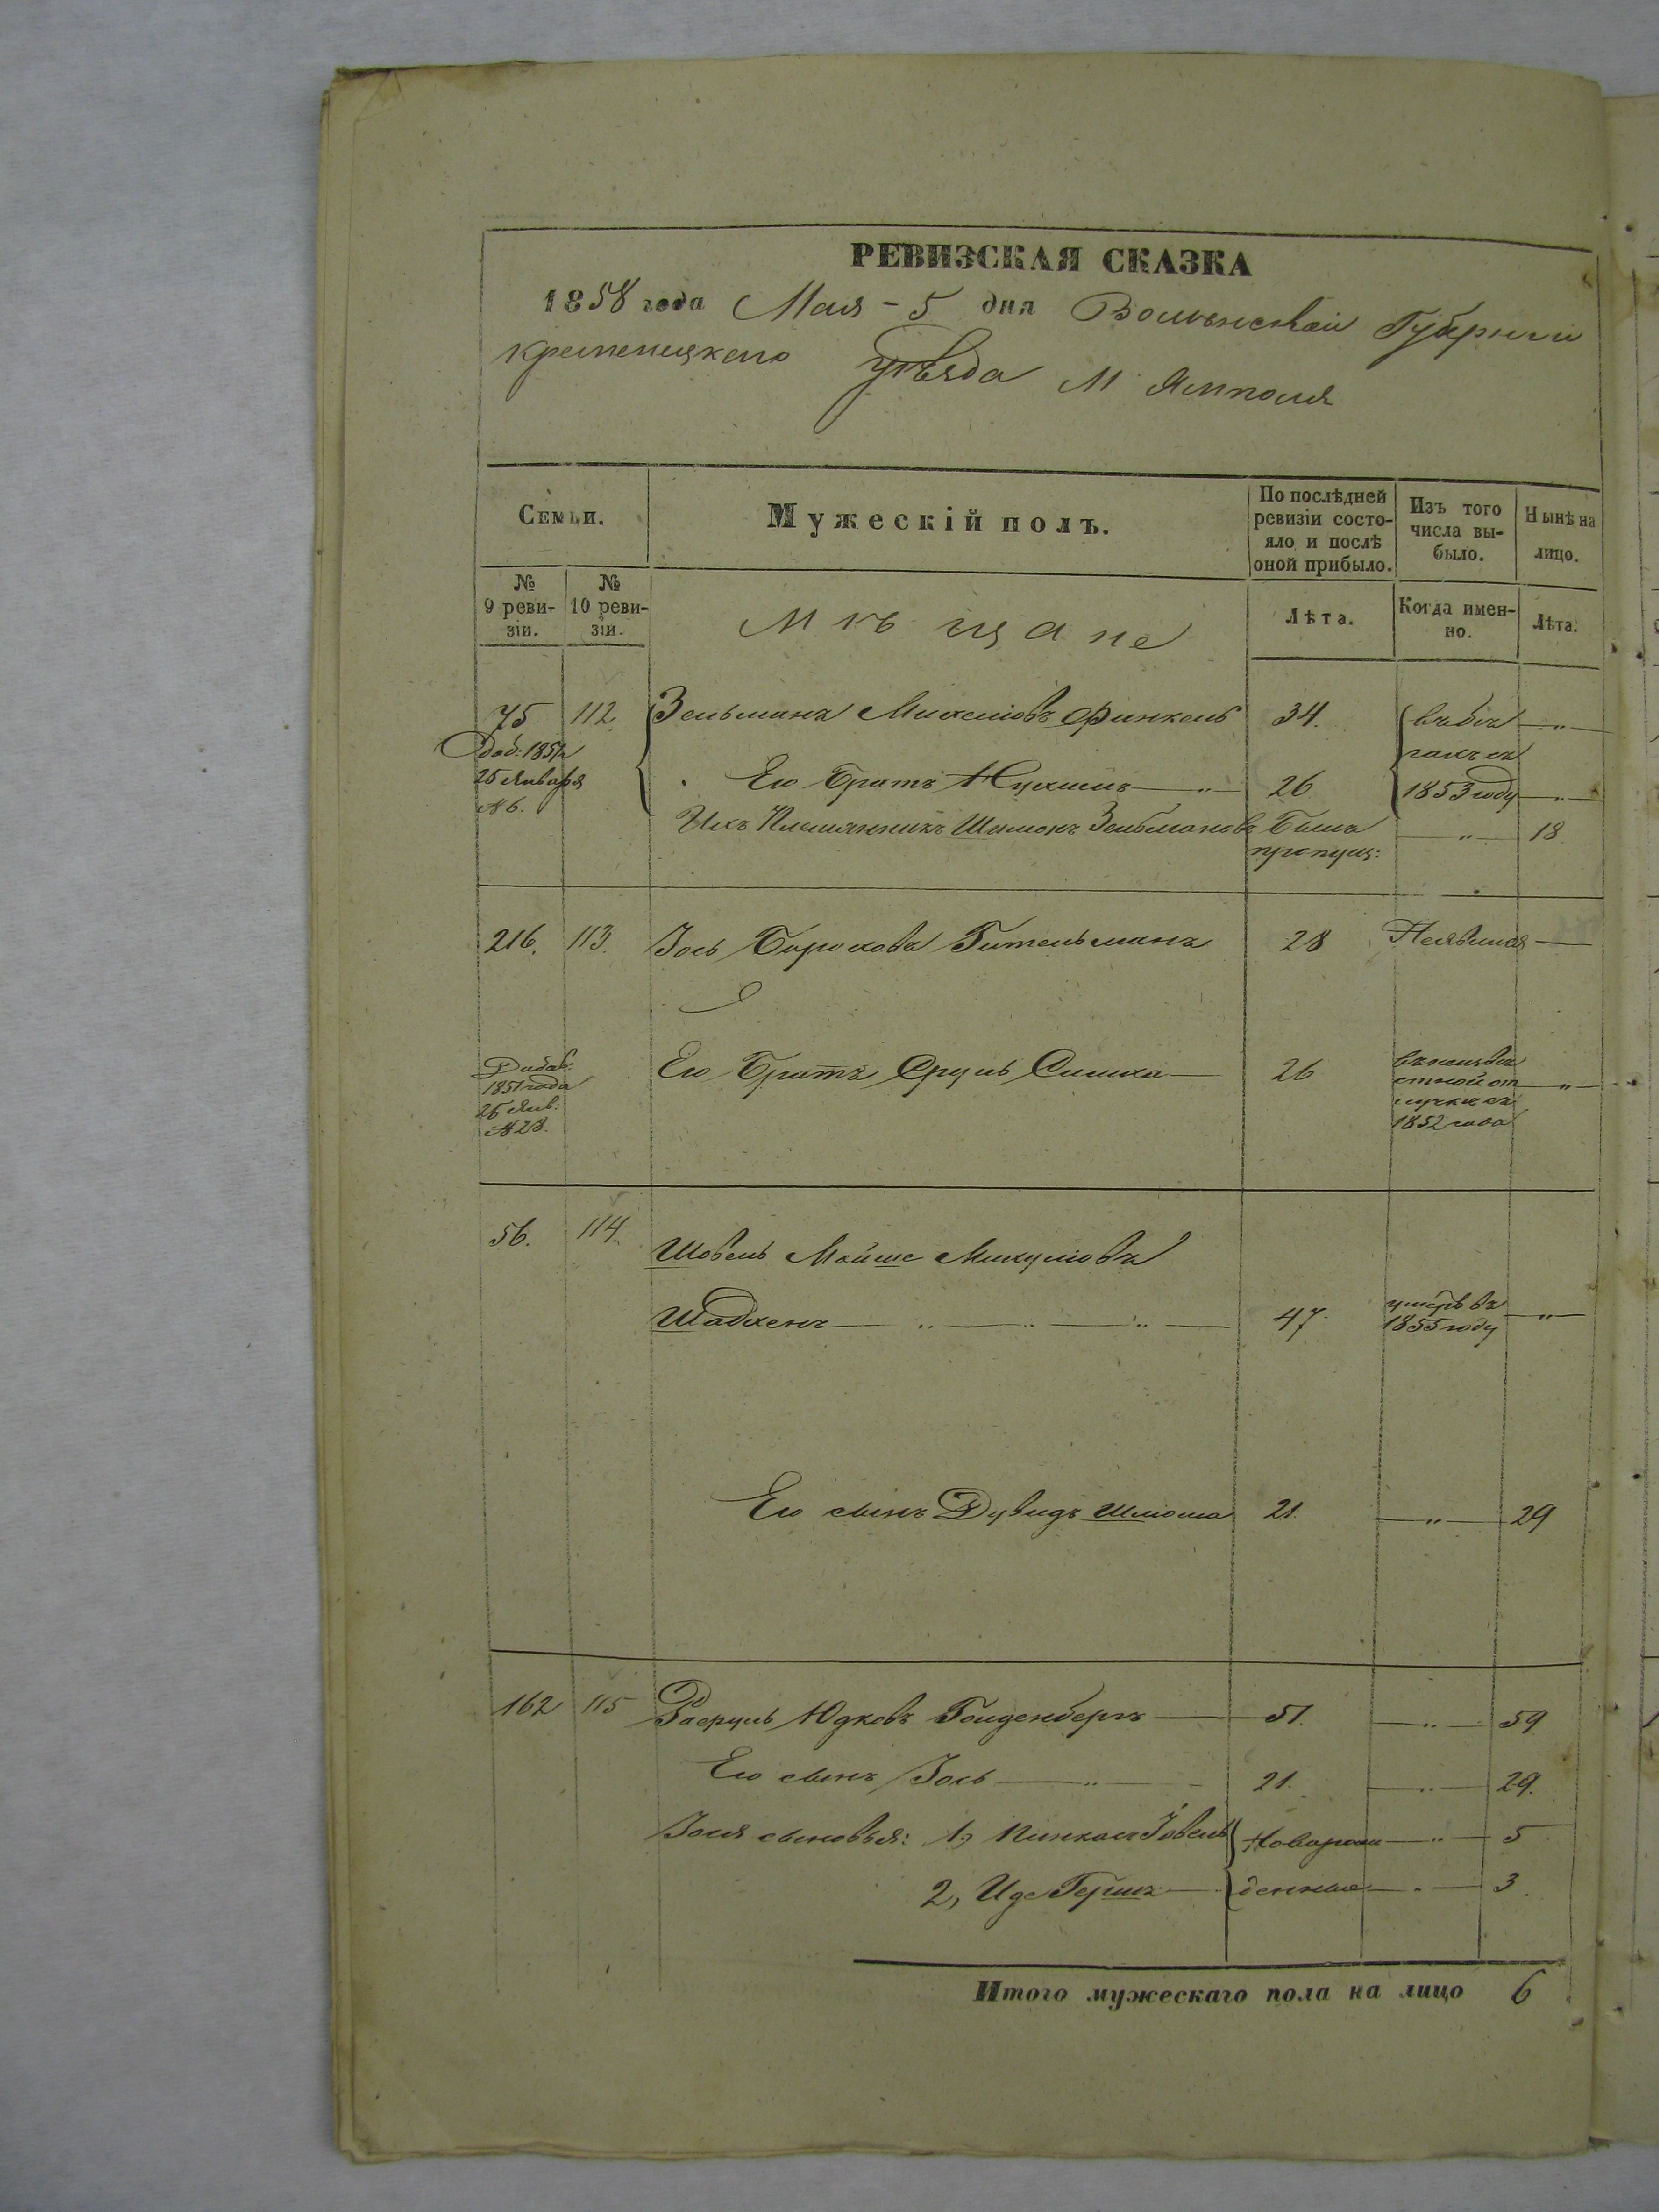 РЕВИЗСКАЯ СКАЗКА
1858 года Мая - 5 дня Волынской Губернии
Кременецкаго уѣзда М Ямполя
Семьи.
Мужескій полъ.
По послѣдней ревизіи состо-
яло и послѣ
оной прибыло.
Изъ того
числа вы-
было.
Нынѣ на
лицо.
№
9 реви-
зіи.
№
10 реви-
зіи.
Мѣщане
Лѣта.
Когда имен-
но.
Лѣта.
75 112 Зельманъ Михелiовъ Финкель 34. въ бѣ
гахъ съ
Доб: 1851
25 Января
№ 6.
Его Братъ Нухимъ 26 1853 году
Ихъ Племянникъ Шимонъ Зельмановъ Былъ 18
пропущ:
216. 113. Іось Боруховъ Гительманъ 28 Неявился
Добав:
1851 года
25 Янв.
№ 28.
Его Братъ Сруль Симха 26 въ неизвѣ
стной от
лучкѣ съ
1852 года
56. 114. Шовель Мойше Микулiовъ
Шадхенъ 47. умеръ въ
1855 году
Его сынъ Дувидъ Шлiома 21. 29
162 115 Юдковъ Голденбергъ 51. 59
Его сынъ Іось 21. 29.
Іося сыновья: 1, Пинхасъ Іовель новорож 5
2, Иде Гершъ денные 3
Итого мужескаго пола на лицо 6